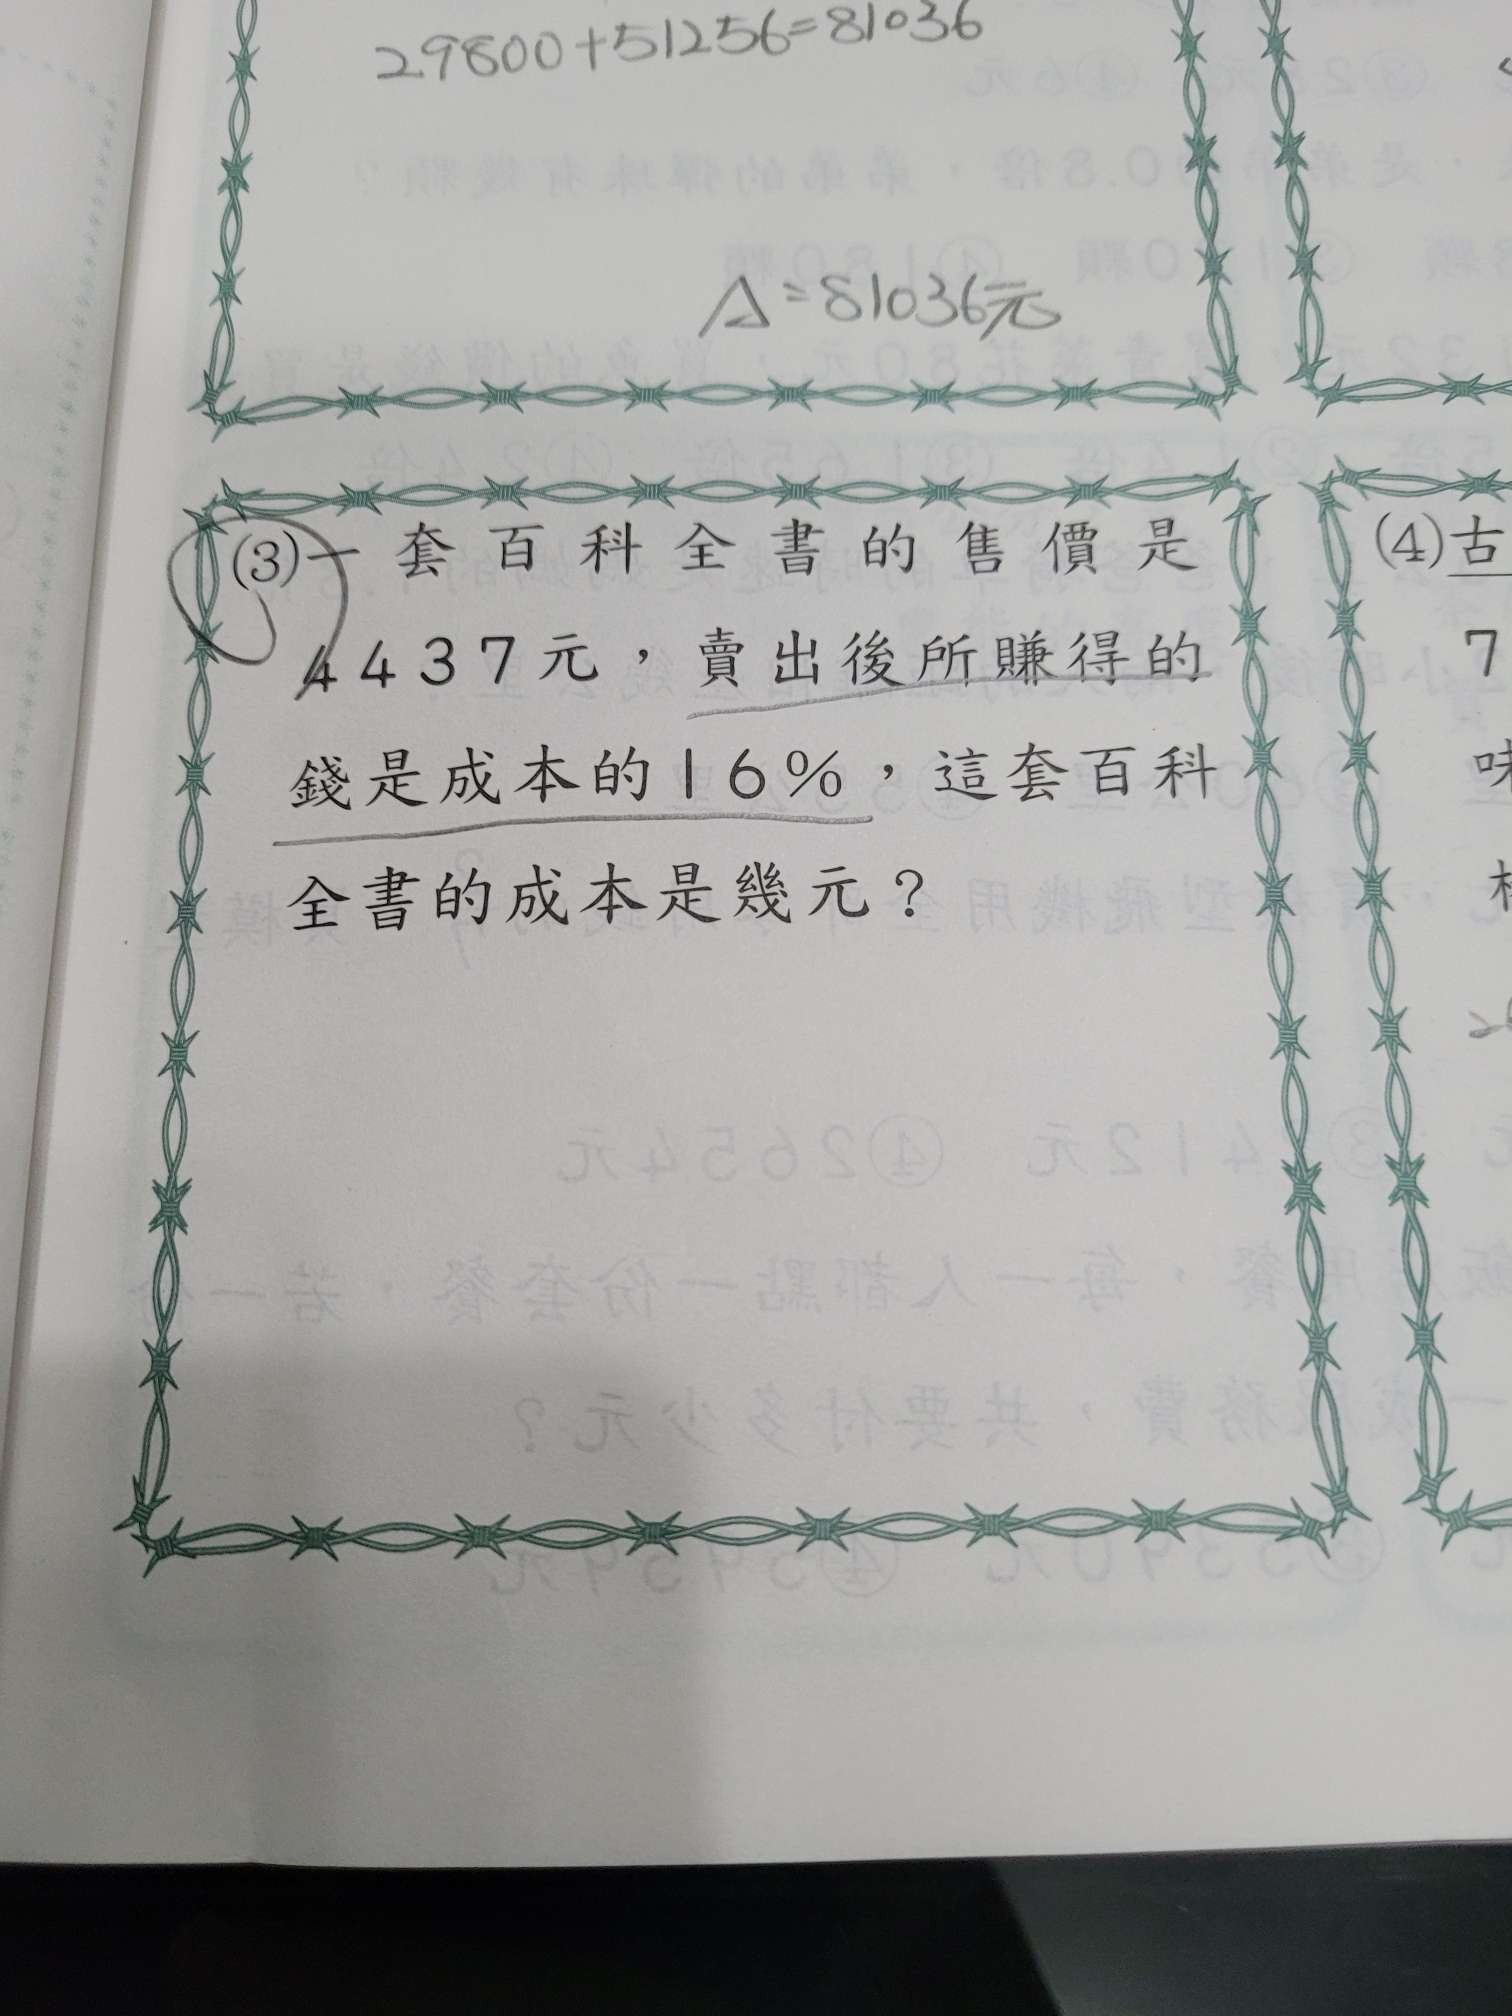 29800+51256=81036
A=81036元
(3)一套百科全書的售價是
4437元，賣出後所賺得的
錢是成本的16%，這套百科
全書的成本是幾元？
(4)古
7